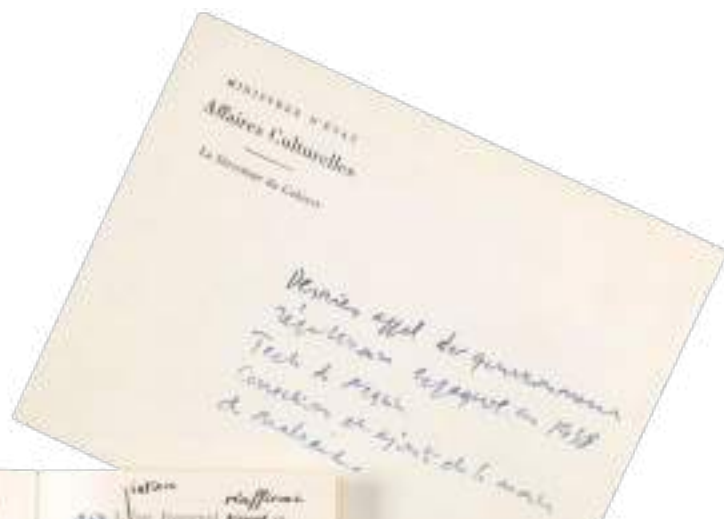 MINISTÈRE D'ETAT
Affaires Culturelles
Le Secrétaire du Cabinet
Dernier appel du gouvernement
républicain espagnol en 1938
Texte de
Correction et ajouts de la main
de Malraux
réaffirme